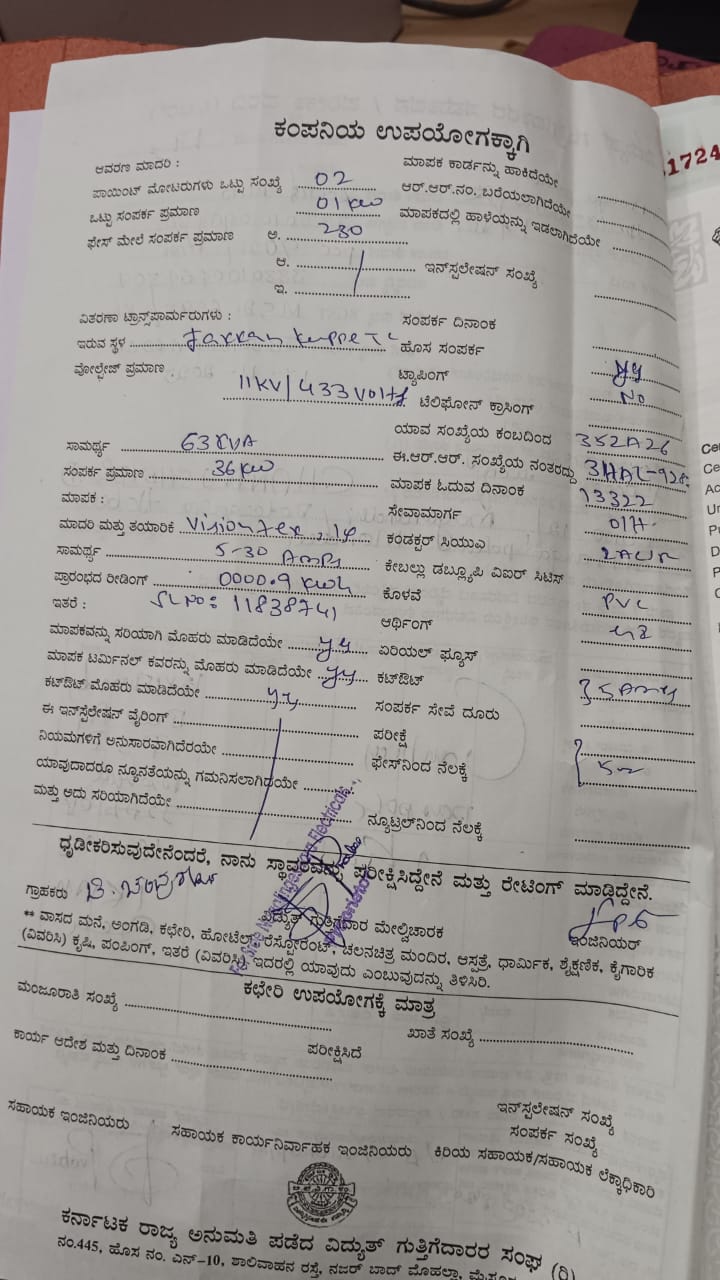 ಕಂಪನಿಯ ಉಪಯೋಗಕ್ಕಾಗಿ
1724
ಆವರಣ ಮಾದರಿ : ಮಾಪಕ ಕಾರ್ಡನ್ನು ಹಾಕಿದೆಯೇ
ಪಾಯಿಂಟ್ ಮೋಟರುಗಳು ಒಟ್ಟು ಸಂಖ್ಯೆ 02 ಆರ್.ಆರ್.ನಂ. ಬರೆಯಲಾಗಿದೆಯೇ
ಒಟ್ಟು ಸಂಪರ್ಕ ಪ್ರಮಾಣ 01 KW ಮಾಪಕದಲ್ಲಿ ಹಾಳೆಯನ್ನು ಇಡಲಾಗಿದೆಯೇ
ಫೇಸ್ ಮೇಲೆ ಸಂಪರ್ಕ ಪ್ರಮಾಣ ಅ. 230
ಆ. ಇನ್‌ಸ್ಪಲೇಷನ್ ಸಂಖ್ಯೆ
ಇ.
ವಿತರಣಾ ಟ್ರಾನ್ಸ್‌ಪಾರ್ಮರುಗಳು : ಸಂಪರ್ಕ ದಿನಾಂಕ
ಇರುವ ಸ್ಥಳ ಹೊಸ ಸಂಪರ್ಕ
ವೋಲ್ಟೇಜ್ ಪ್ರಮಾಣ 11KV/433 Volts ಟ್ಯಾಪಿಂಗ್
ಟೆಲಿಫೋನ್ ಕ್ರಾಸಿಂಗ್ No
ಯಾವ ಸಂಖ್ಯೆಯ ಕಂಬದಿಂದ 352A26
ಸಾಮರ್ಥ್ಯ 63 KVA ಈ.ಆರ್.ಆರ್. ಸಂಖ್ಯೆಯ ನಂತರದ್ದು
ಸಂಪರ್ಕ ಪ್ರಮಾಣ 36 KW ಮಾಪಕ ಓದುವ ದಿನಾಂಕ 13322
ಮಾಪಕ : ಸೇವಾಮಾರ್ಗ O/H
ಮಾದರಿ ಮತ್ತು ತಯಾರಿಕೆ Visiontex, 1φ ಕಂಡಕ್ಟರ್ ಸಿಯುಎ
ಸಾಮರ್ಥ್ಯ 5-30 Amps ಕೇಬಲ್ಲು ಡಬ್ಲ್ಯೂಪಿ ವಿಐರ್ ಸಿಟಿಸ್
ಪ್ರಾರಂಭದ ರೀಡಿಂಗ್ 0000.9 KWh ಕೊಳವೆ PVC
ಇತರೆ : SL No: 11838741 ಆರ್ಥಿಂಗ್
ಮಾಪಕವನ್ನು ಸರಿಯಾಗಿ ಮೊಹರು ಮಾಡಿದೆಯೇ ಏರಿಯಲ್ ಫ್ಯೂಸ್
ಮಾಪಕ ಟರ್ಮಿನಲ್ ಕವರನ್ನು ಮೊಹರು ಮಾಡಿದೆಯೇ ಕಟ್‌ಔಟ್
ಕಟ್‌ಔಟ್ ಮೊಹರು ಮಾಡಿದೆಯೇ ಸಂಪರ್ಕ ಸೇವೆ ದೂರು
ಈ ಇನ್‌ಸ್ಟಲೇಷನ್ ವೈರಿಂಗ್ ಪರೀಕ್ಷೆ
ನಿಯಮಗಳಿಗೆ ಅನುಸಾರವಾಗಿದೆರಯೇ ಫೇಸ್‌ನಿಂದ ನೆಲಕ್ಕೆ
ಯಾವುದಾದರೂ ನ್ಯೂನತೆಯನ್ನು ಗಮನಿಸಲಾಗಿದೆಯೇ
ಮತ್ತು ಅದು ಸರಿಯಾಗಿದೆಯೇ ನ್ಯೂಟ್ರಲ್‌ನಿಂದ ನೆಲಕ್ಕೆ
ಧೃಡೀಕರಿಸುವುದೇನೆಂದರೆ, ನಾನು ಸ್ಥಾವರವನ್ನು ಪರೀಕ್ಷಿಸಿದ್ದೇನೆ ಮತ್ತು ರೇಟಿಂಗ್ ಮಾಡಿದ್ದೇನೆ.
ಗ್ರಾಹಕರು ವಿದ್ಯುತ್ ಗುತ್ತಿಗೆದಾರ ಮೇಲ್ವಿಚಾರಕ ಇಂಜಿನಿಯರ್
** ವಾಸದ ಮನೆ, ಅಂಗಡಿ, ಕಛೇರಿ, ಹೋಟೆಲ್, ರೆಸ್ಟೋರೆಂಟ್, ಚಲನಚಿತ್ರ ಮಂದಿರ, ಆಸ್ಪತ್ರೆ, ಧಾರ್ಮಿಕ, ಶೈಕ್ಷಣಿಕ, ಕೈಗಾರಿಕ
(ವಿವರಿಸಿ) ಕೃಷಿ, ಪಂಪಿಂಗ್, ಇತರೆ (ವಿವರಿಸಿ) ಇದರಲ್ಲಿ ಯಾವುದು ಎಂಬುವುದನ್ನು ತಿಳಿಸಿರಿ.
ಕಛೇರಿ ಉಪಯೋಗಕ್ಕೆ ಮಾತ್ರ
ಮಂಜೂರಾತಿ ಸಂಖ್ಯೆ ಖಾತೆ ಸಂಖ್ಯೆ
ಕಾರ್ಯ ಆದೇಶ ಮತ್ತು ದಿನಾಂಕ ಪರೀಕ್ಷಿಸಿದೆ
ಇನ್‌ಸ್ಪಲೇಷನ್ ಸಂಖ್ಯೆ
ಸಂಪರ್ಕ ಸಂಖ್ಯೆ
ಸಹಾಯಕ ಇಂಜಿನಿಯರು ಸಹಾಯಕ ಕಾರ್ಯನಿರ್ವಾಹಕ ಇಂಜಿನಿಯರು ಕಿರಿಯ ಸಹಾಯಕ/ಸಹಾಯಕ ಲೆಕ್ಕಾಧಿಕಾರಿ
ಕರ್ನಾಟಕ ರಾಜ್ಯ ಅನುಮತಿ ಪಡೆದ ವಿದ್ಯುತ್ ಗುತ್ತಿಗೆದಾರರ ಸಂಘ (ರಿ)
ನಂ.445, ಹೊಸ ನಂ. ಎನ್-10, ಶಾಲಿವಾಹನ ರಸ್ತೆ, ನಜರ್ ಬಾದ್ ಮೊಹಲ್ಲಾ,